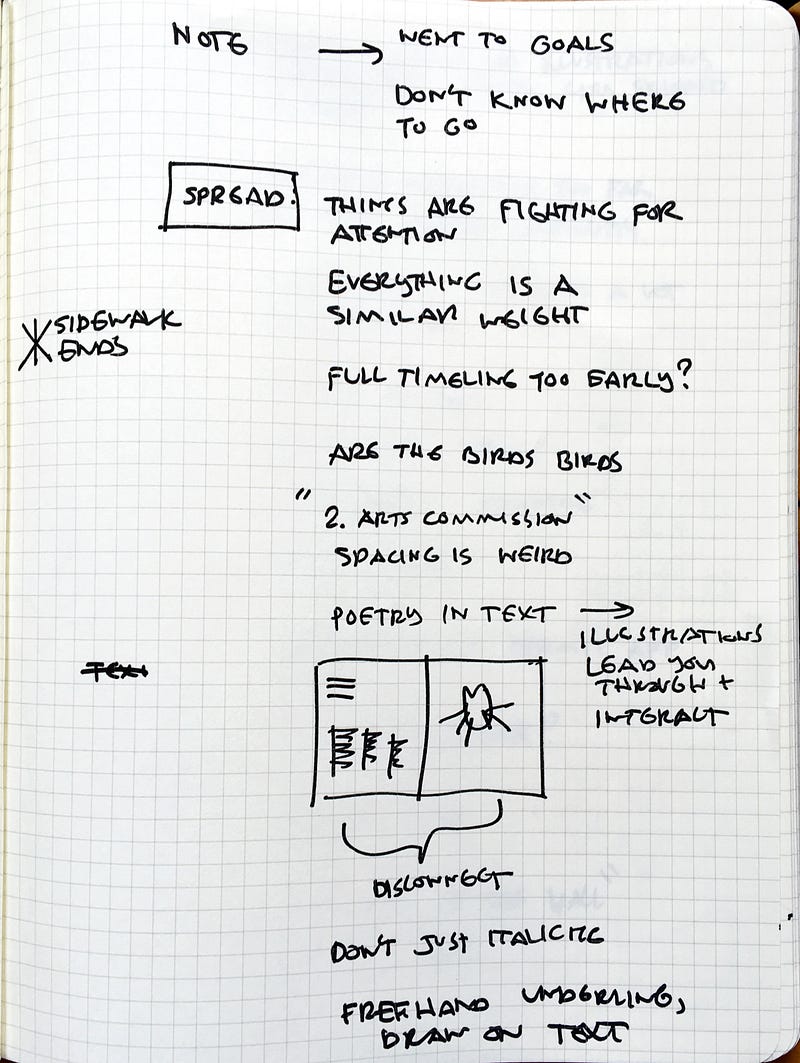 NOTE → WENT TO GOALS
DON'T KNOW WHERE
TO GO
SPREAD.
THINGS ARE FIGHTING FOR
ATTENTION
EVERYTHING IS A
SIMILAR WEIGHT
SIDEWALK
ENDS
FULL TIMELINE TOO EARLY?
ARE THE BIRDS BIRDS
"2. ARTS COMMISSION"
SPACING IS WEIRD
POETRY IN TEXT →
ILLUSTRATIONS
LEAD YOU
THROUGH +
INTERACT
TEXT
DISCONNECT
DON'T JUST ITALICIZE
FREEHAND UNDERLINE,
DRAW ON TEXT